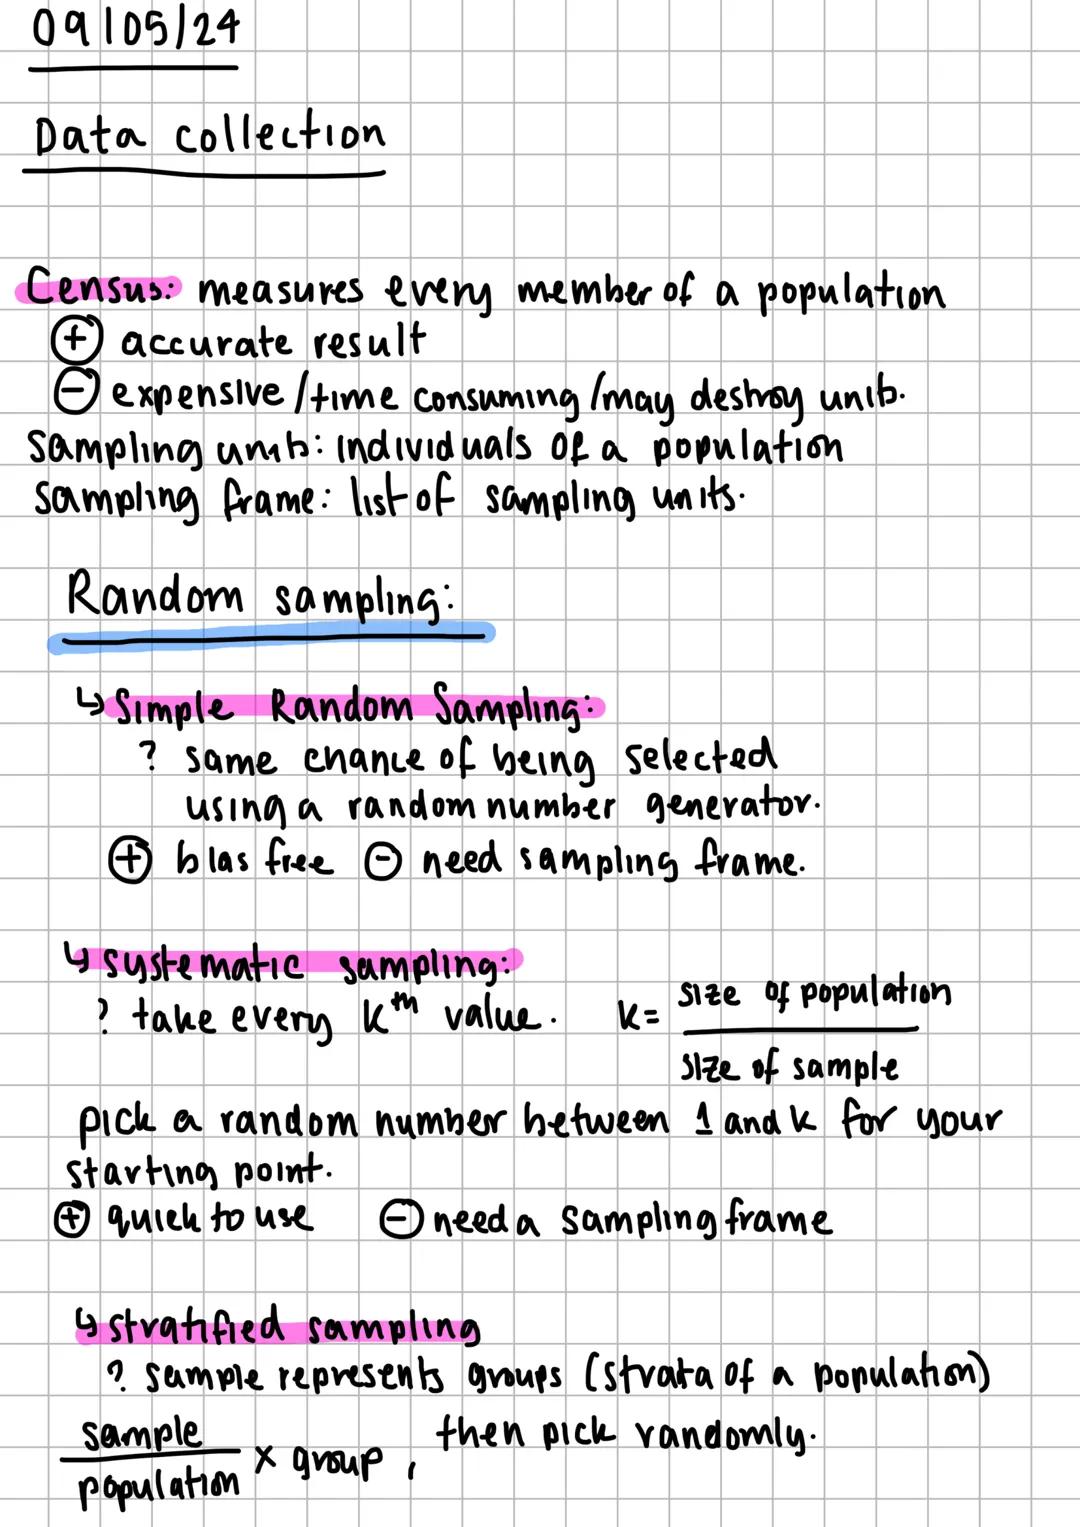 09/05/24
Data collection
Census: measures every member of a population
⊕ accurate result
⊖ expensive /time consuming /may destroy units.
sampling units: individuals of a population
sampling frame: list of sampling units.
Random sampling:
↳ Simple Random Sampling:
? same chance of being selected
using a random number generator.
⊕ bias free ⊖ need sampling frame.
↳ systematic sampling:
? take every kᵗʰ value. k= size of population
size of sample
pick a random number between 1 and k for your
starting point.
⊕ quick to use ⊖ need a sampling frame
↳ stratified sampling
? sample represents groups (strata of a population)
sample
population × group , then pick randomly.